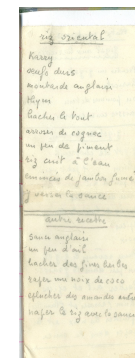 riz oriental
Karry
oeufs durs
moutarde anglaise
thym
hacher le tout
arroser de cognac
un peu de piment
riz cuit à l'eau
émincés de jambon fumé
y verser la sauce
autre recette
sauce anglaise
un peu d'ail
hacher des fines herbes
raper une noix de coco
éplucher des amandes
napper le riz avec la sauce